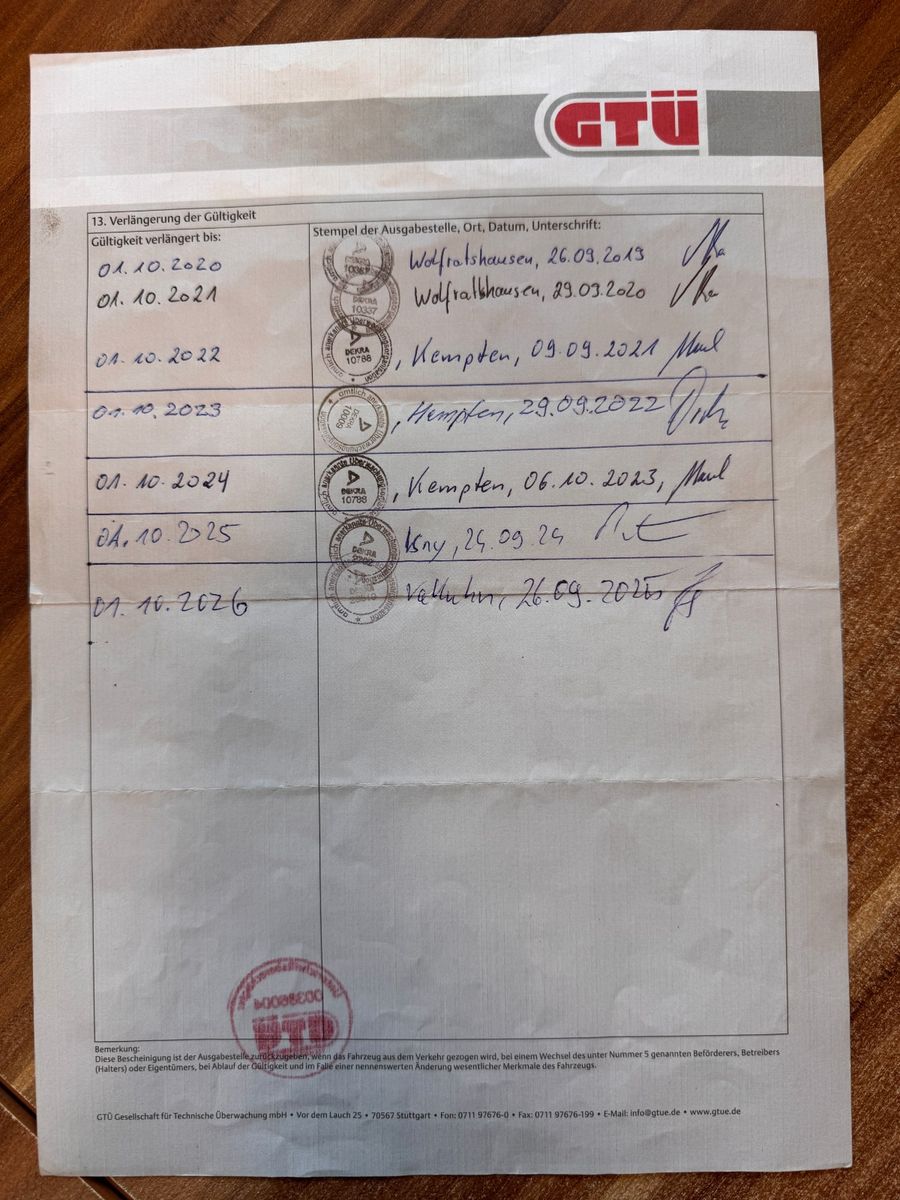 GTÜ
13. Verlängerung der Gültigkeit
Gültigkeit verlängert bis:
Stempel der Ausgabestelle, Ort, Datum, Unterschrift:
01.10.2020
DEKRA
Wolfratshausen, 26.09.2019
01.10.2021
DEKRA
10337
Wolfratshausen, 29.09.2020
01.10.2022
amtlich anerkannte Überwachungsorganisation
DEKRA
10788
, Kempten, 09.09.2021
01.10.2023
amtlich anerkannte Überwachungsorganisation
DEKRA
10009
, Kempten, 29.09.2022
01.10.2024
amtlich anerkannte Überwachungsorganisation
DEKRA
10788
, Kempten, 06.10.2023,
01.10.2025
amtlich anerkannte
DEKRA
Isny, 24.09.24
01.10.2026
26.09.2025
00388004
GTÜ
Bemerkung:
Diese Bescheinigung ist der Ausgabestelle zurückzugeben, wenn das Fahrzeug aus dem Verkehr gezogen wird, bei einem Wechsel des unter Nummer 5 genannten Beförderers, Betreibers
(Halters) oder Eigentümers, bei Ablauf der Gültigkeit und im Falle einer nennenswerten Änderung wesentlicher Merkmale des Fahrzeugs.
GTÜ Gesellschaft für Technische Überwachung mbH • Vor dem Lauch 25 • 70567 Stuttgart • Fon: 0711 97676-0 • Fax: 0711 97676-199 • E-Mail: info@gtue.de • www.gtue.de